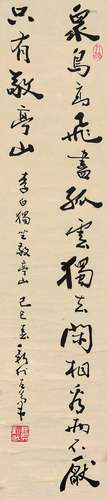 衆鳥高飛盡孤雲獨去閑相看兩不厭
只有敬亭山 李白獨坐敬亭山 己巳春